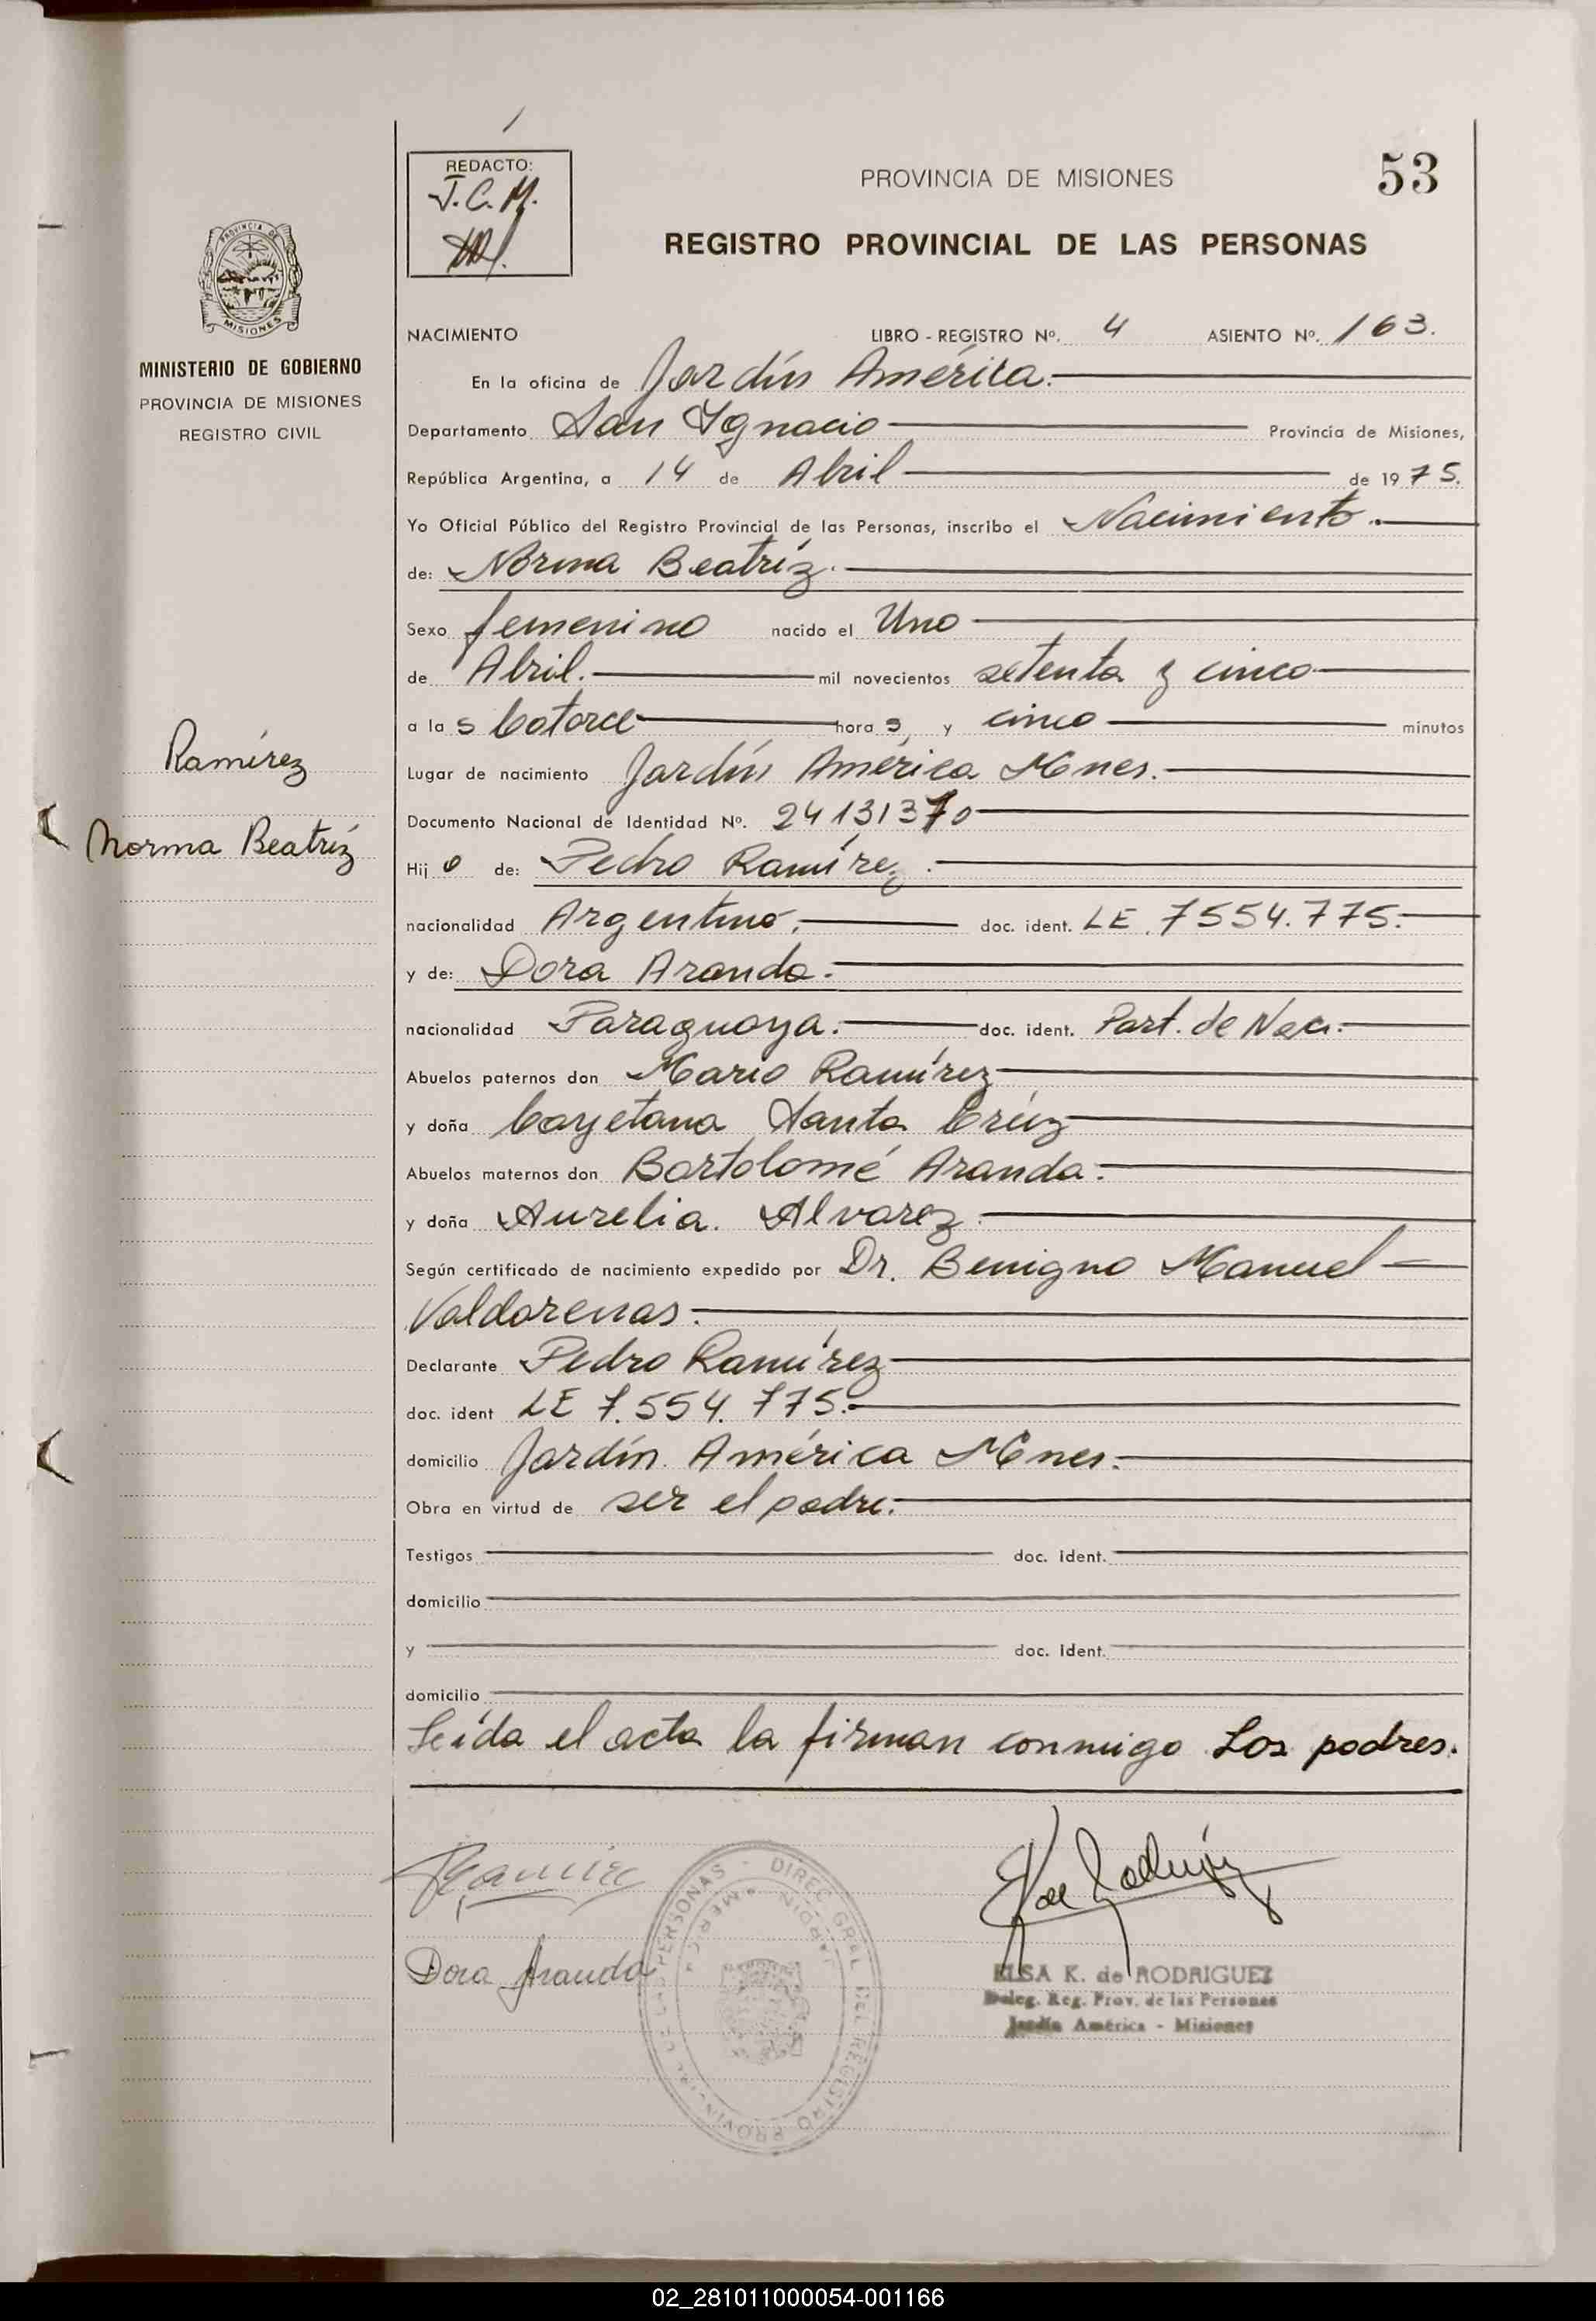 REDACTO:
J.C.M.
PROVINCIA DE MISIONES
53
REGISTRO PROVINCIAL DE LAS PERSONAS
PROVINCIA DE
MISIONES
MINISTERIO DE GOBIERNO
PROVINCIA DE MISIONES
REGISTRO CIVIL
NACIMIENTO LIBRO - REGISTRO Nº. 4 ASIENTO Nº. 163.
En la oficina de Jardín América.
Departamento San Ygnacio Provincia de Misiones,
República Argentina, a 14 de Abril de 1975.
Yo Oficial Público del Registro Provincial de las Personas, inscribo el Nacimiento.
de: Norma Beatríz.
Sexo femenino nacido el Uno
de Abril. mil novecientos setenta y cinco
a las Catorce horas, y cinco minutos
Ramírez
Lugar de nacimiento Jardín América Mnes.
Documento Nacional de Identidad Nº. 24131370
Norma Beatríz
Hijo de: Pedro Ramírez.
nacionalidad Argentino. doc. ident. LE. 7554.775.
y de: Dora Aranda.
nacionalidad Paraguaya. doc. ident. Part. de Nac.
Abuelos paternos don Mario Ramírez
y doña Cayetana Santa Crúz
Abuelos maternos don Bartolomé Aranda.
y doña Aurelia. Alvarez.
Según certificado de nacimiento expedido por Dr. Benigno Manuel
Valdarenas.
Declarante Pedro Ramírez
doc. ident LE 7.554.775.
domicilio Jardín América Mnes.
Obra en virtud de ser el padre.
Testigos doc. ident.
domicilio
y doc. ident.
domicilio
Leída el acta la firman conmigo Los padres.
Ramirez
Dora Aranda
DIREC. GRAL DEL REGISTRO PROVINCIAL DE LAS PERSONAS
JARDIN AMERICA
ELSA K. de RODRIGUEZ
Deleg. Reg. Prov. de las Personas
Jardín América - Misiones
02_281011000054-001166